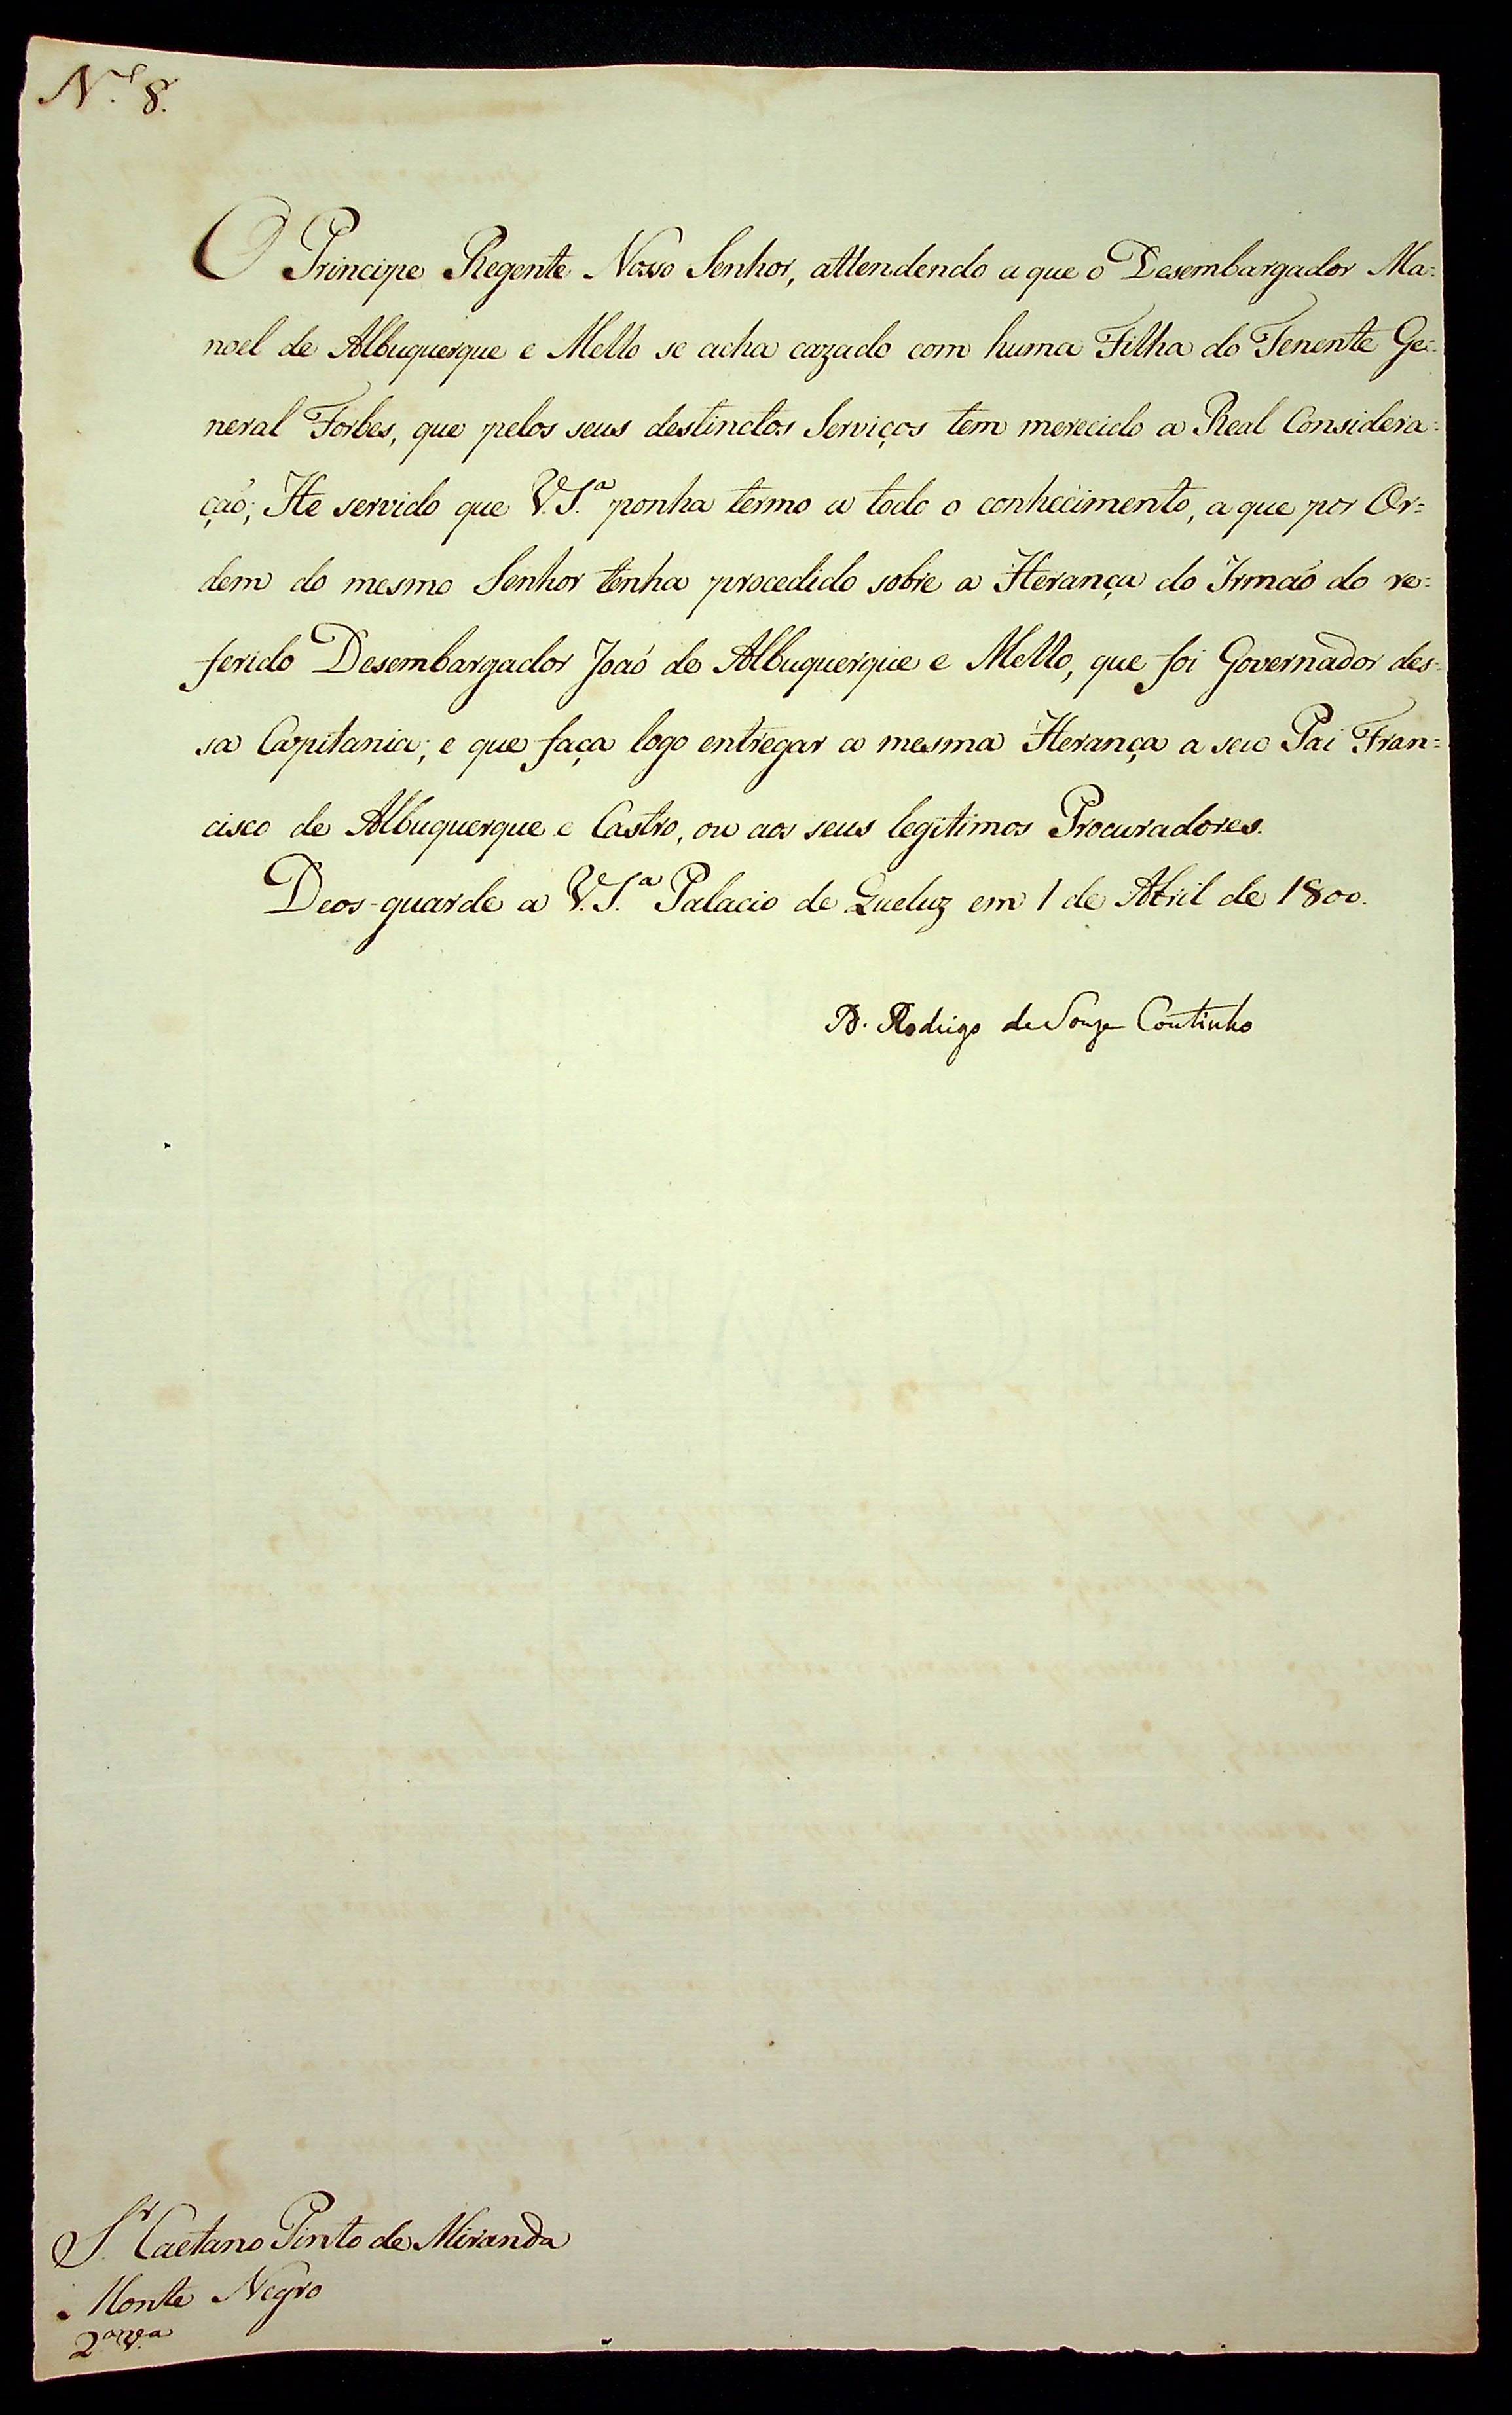 N.º 8.
O Principe Regente Nosso Senhor, attendendo a que o Desembargador Ma=
noel de Albuquerque e Mello se acha cazado com huma Filha do Tenente Ge=
neral Forbes, que pelos seus destinctos Serviços tem merecido a Real Considera=
çaõ; He servido que V.S.ª ponha termo a todo o conhecimento, a que por Or=
dem do mesmo Senhor tenha procedido sobre a Herança do Irmaõ do re=
ferido Desembargador Joaõ de Albuquerque e Mello, que foi Governador des=
sa Capitania; e que faça logo entregar a mesma Herança a seu Pai Fran=
cisco de Albuquerque e Castro, ou aos seus legitimos Procuradores.
Deos guarde a V.S.ª Palacio de Queluz em 1 de Abril de 1800.
D. Rodrigo de Souza Coutinho
S.r Caetano Pinto de Miranda
Monte Negro
2.ª v.ª